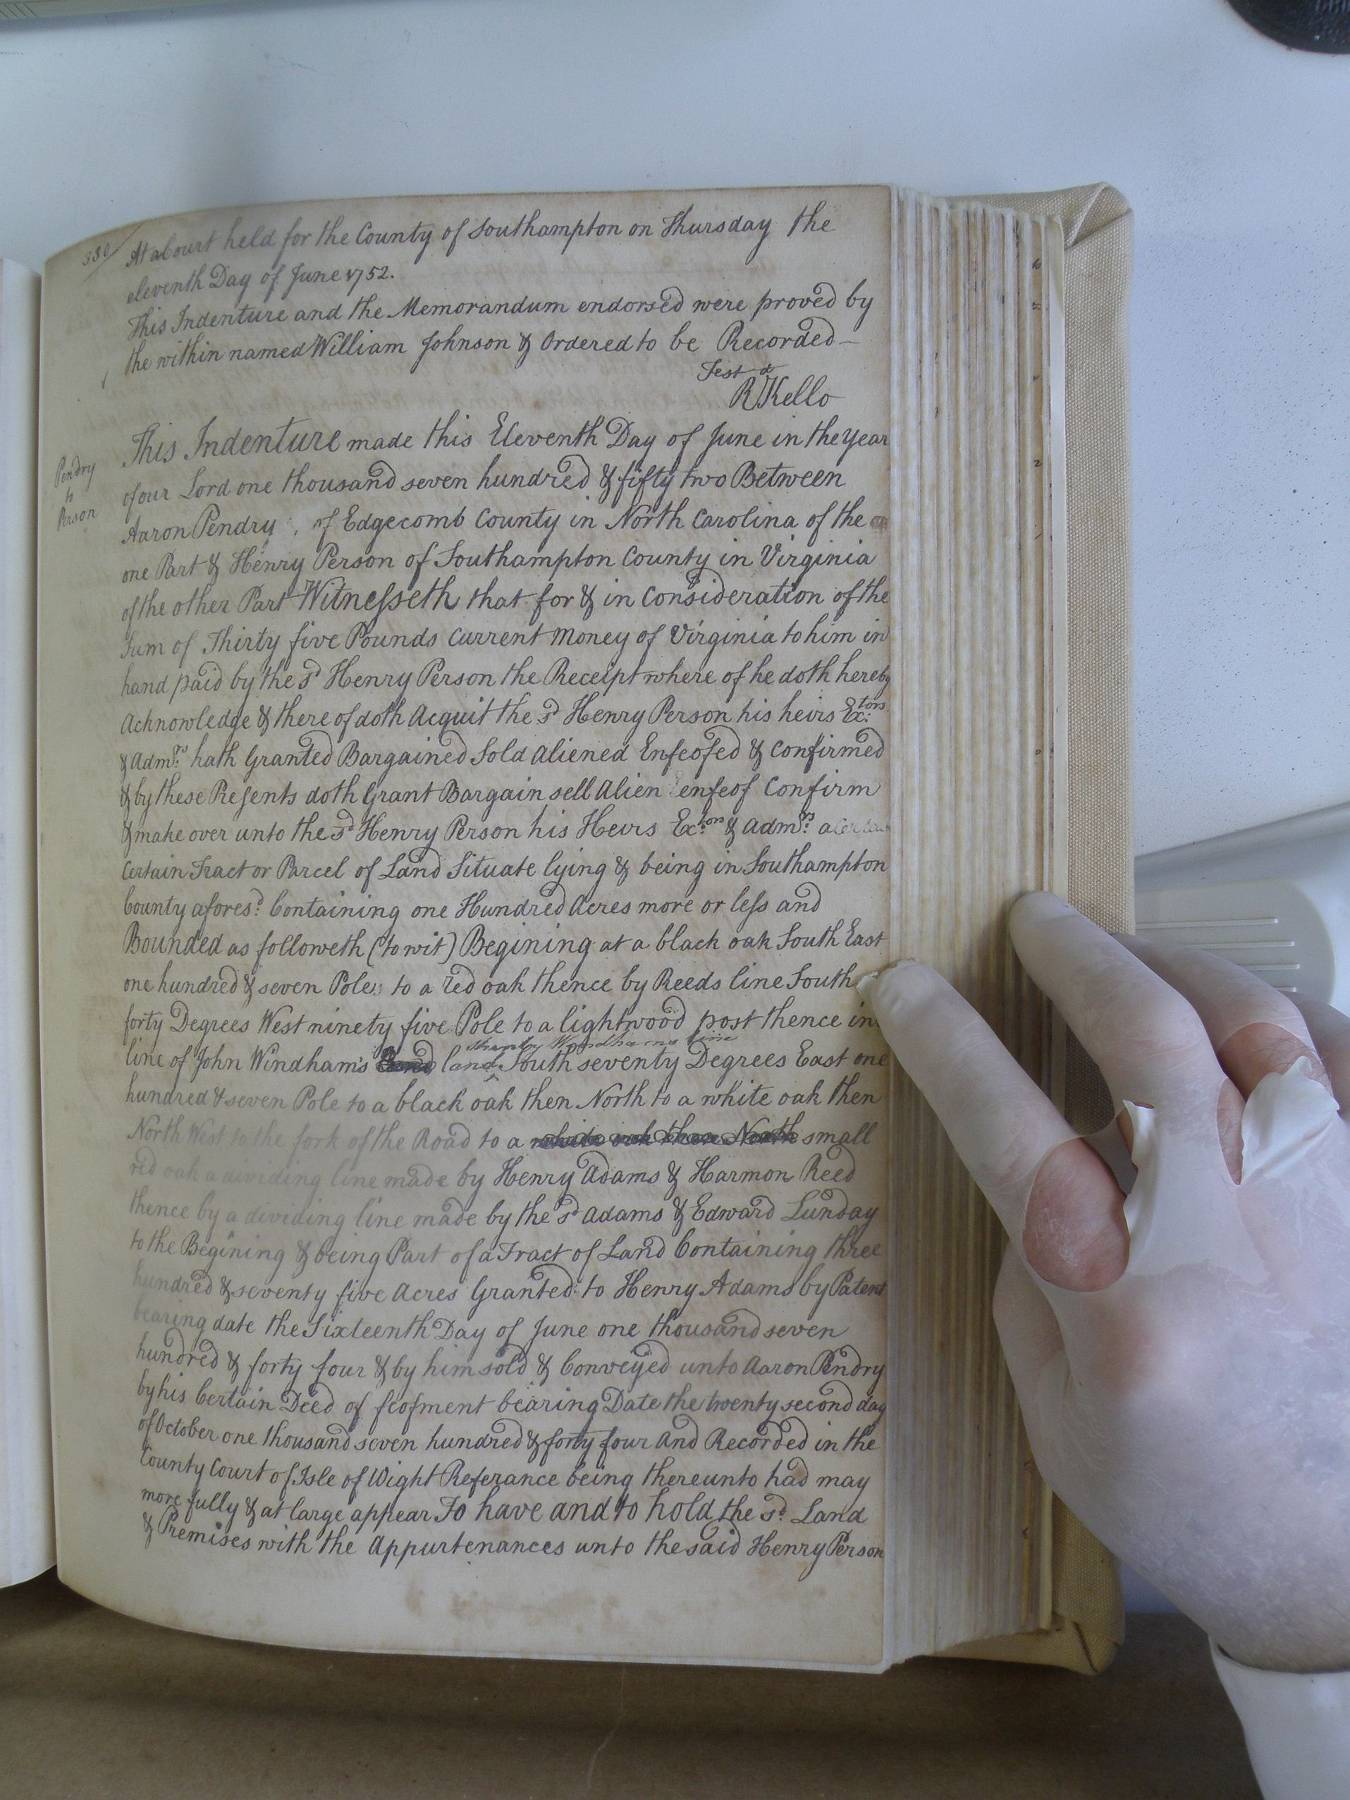 330
At a Court held for the County of Southampton on Thursday the
eleventh Day of June 1752.
This Indenture and the Memorandum endorsed were proved by
the within named William Johnson & Ordered to be Recorded
Test
R Kello
Pendry
to
Person
This Indenture made this Eleventh Day of June in the year
of our Lord one thousand seven hundred & fifty two Between
Aaron Pendry, of Edgecomb County in North Carolina of the
one Part & Henry Person of Southampton County in Virginia
of the other Part Witnesseth that for & in Consideration of the
Sum of Thirty five Pounds Current Money of Virginia to him in
hand paid by the sd Henry Person the Receipt where of he doth hereby
Acknowledge & there of doth Acquit the sd Henry Person his heirs Ex:tors
& Adm:rs hath Granted Bargained Sold Aliened Enfeofed & Confirmed
& by these Presents doth Grant Bargain sell Alien enfeof Confirm
& make over unto the sd Henry Person his Heirs Ex:tors & Adm:rs a
Certain Tract or Parcel of Land Situate lying & being in Southampton
County afores:d Containing one Hundred Acres more or less and
Bounded as followeth (to wit) Begining at a black oak South East
one hundred & seven Poles to a red oak thence by Reeds line South
forty Degrees West ninety five Pole to a lightwood post thence in
thence by Windhams line
line of John Windham's land South seventy Degrees East one
hundred & seven Pole to a black oak then North to a white oak then
North West to the fork of the Road to a white oak then North small
red oak a dividing line made by Henry Adams & Harmon Reed
thence by a dividing line made by the sd Adams & Edward Lunday
to the Begining & being Part of a Tract of Land Containing three
hundred & seventy five Acres Granted to Henry Adams by Patent
bearing date the Sixteenth Day of June one thousand seven
hundred & forty four & by him sold & Conveyed unto Aaron Pendry
by his Certain Deed of feofment bearing Date the twenty second day
of October one thousand seven hundred & forty four And Recorded in the
County Court of Isle of Wight Referance being thereunto had may
more fully & at large appear To have and to hold the sd Land
& Premises with the Appurtenances unto the said Henry Person